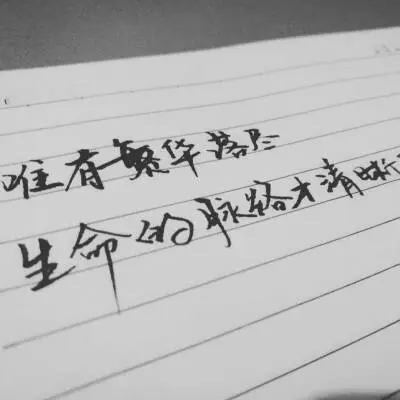 唯有繁华落尽
生命的脉络才清晰